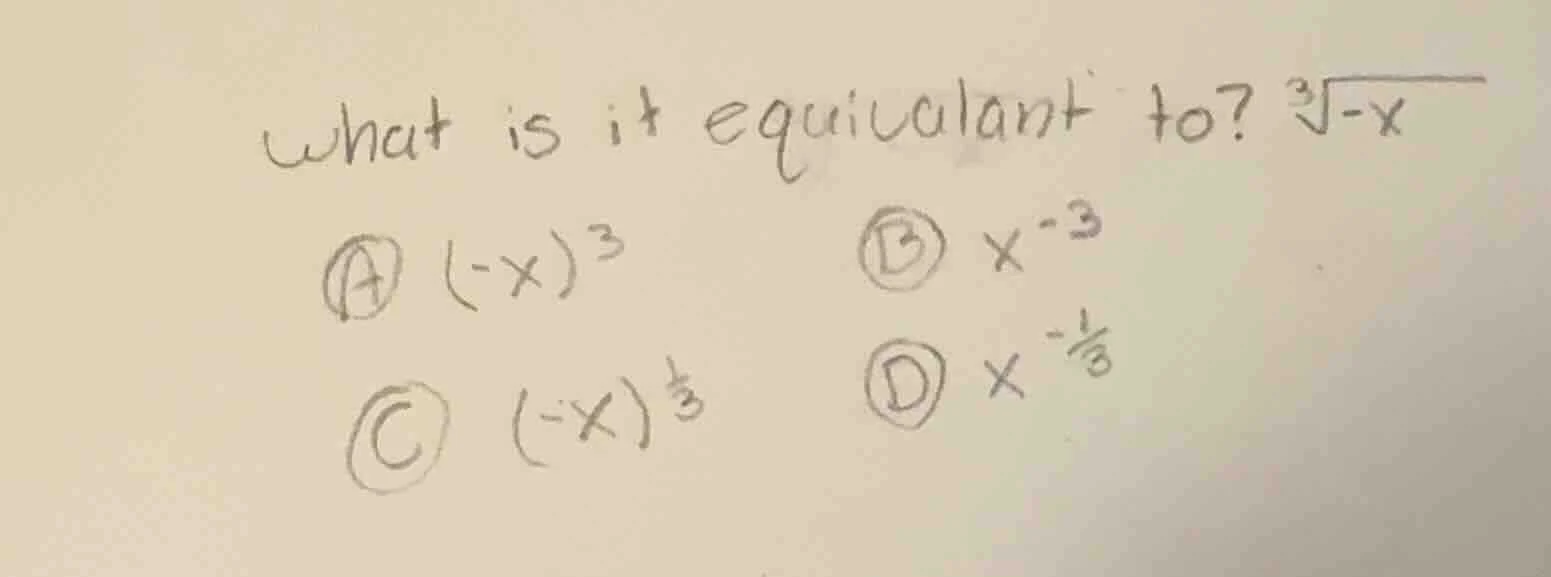 what is it equivalant to? ∛-x
Ⓐ (-x)³ Ⓑ x⁻³
Ⓒ (-x)^⅓ Ⓓ x^-⅓